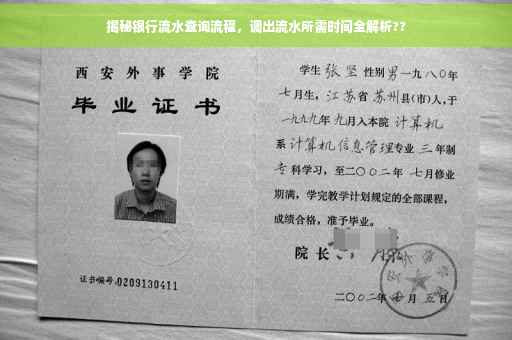 揭秘银行流水查询流程，调出流水所需时间全解析??
西安外事学院
毕业证书
证书编号:0209130411
学生 张坚 性别男一九八〇年
七月生，江苏省苏州县(市)人,于
一九九九年九月入本院 计算机
系计算机信息管理专业 三 年制
专科学习，至二〇〇二年 七月修业
期满，学完教学计划规定的全部课程，
成绩合格，准予毕业。
院长
二〇〇二年 月五日